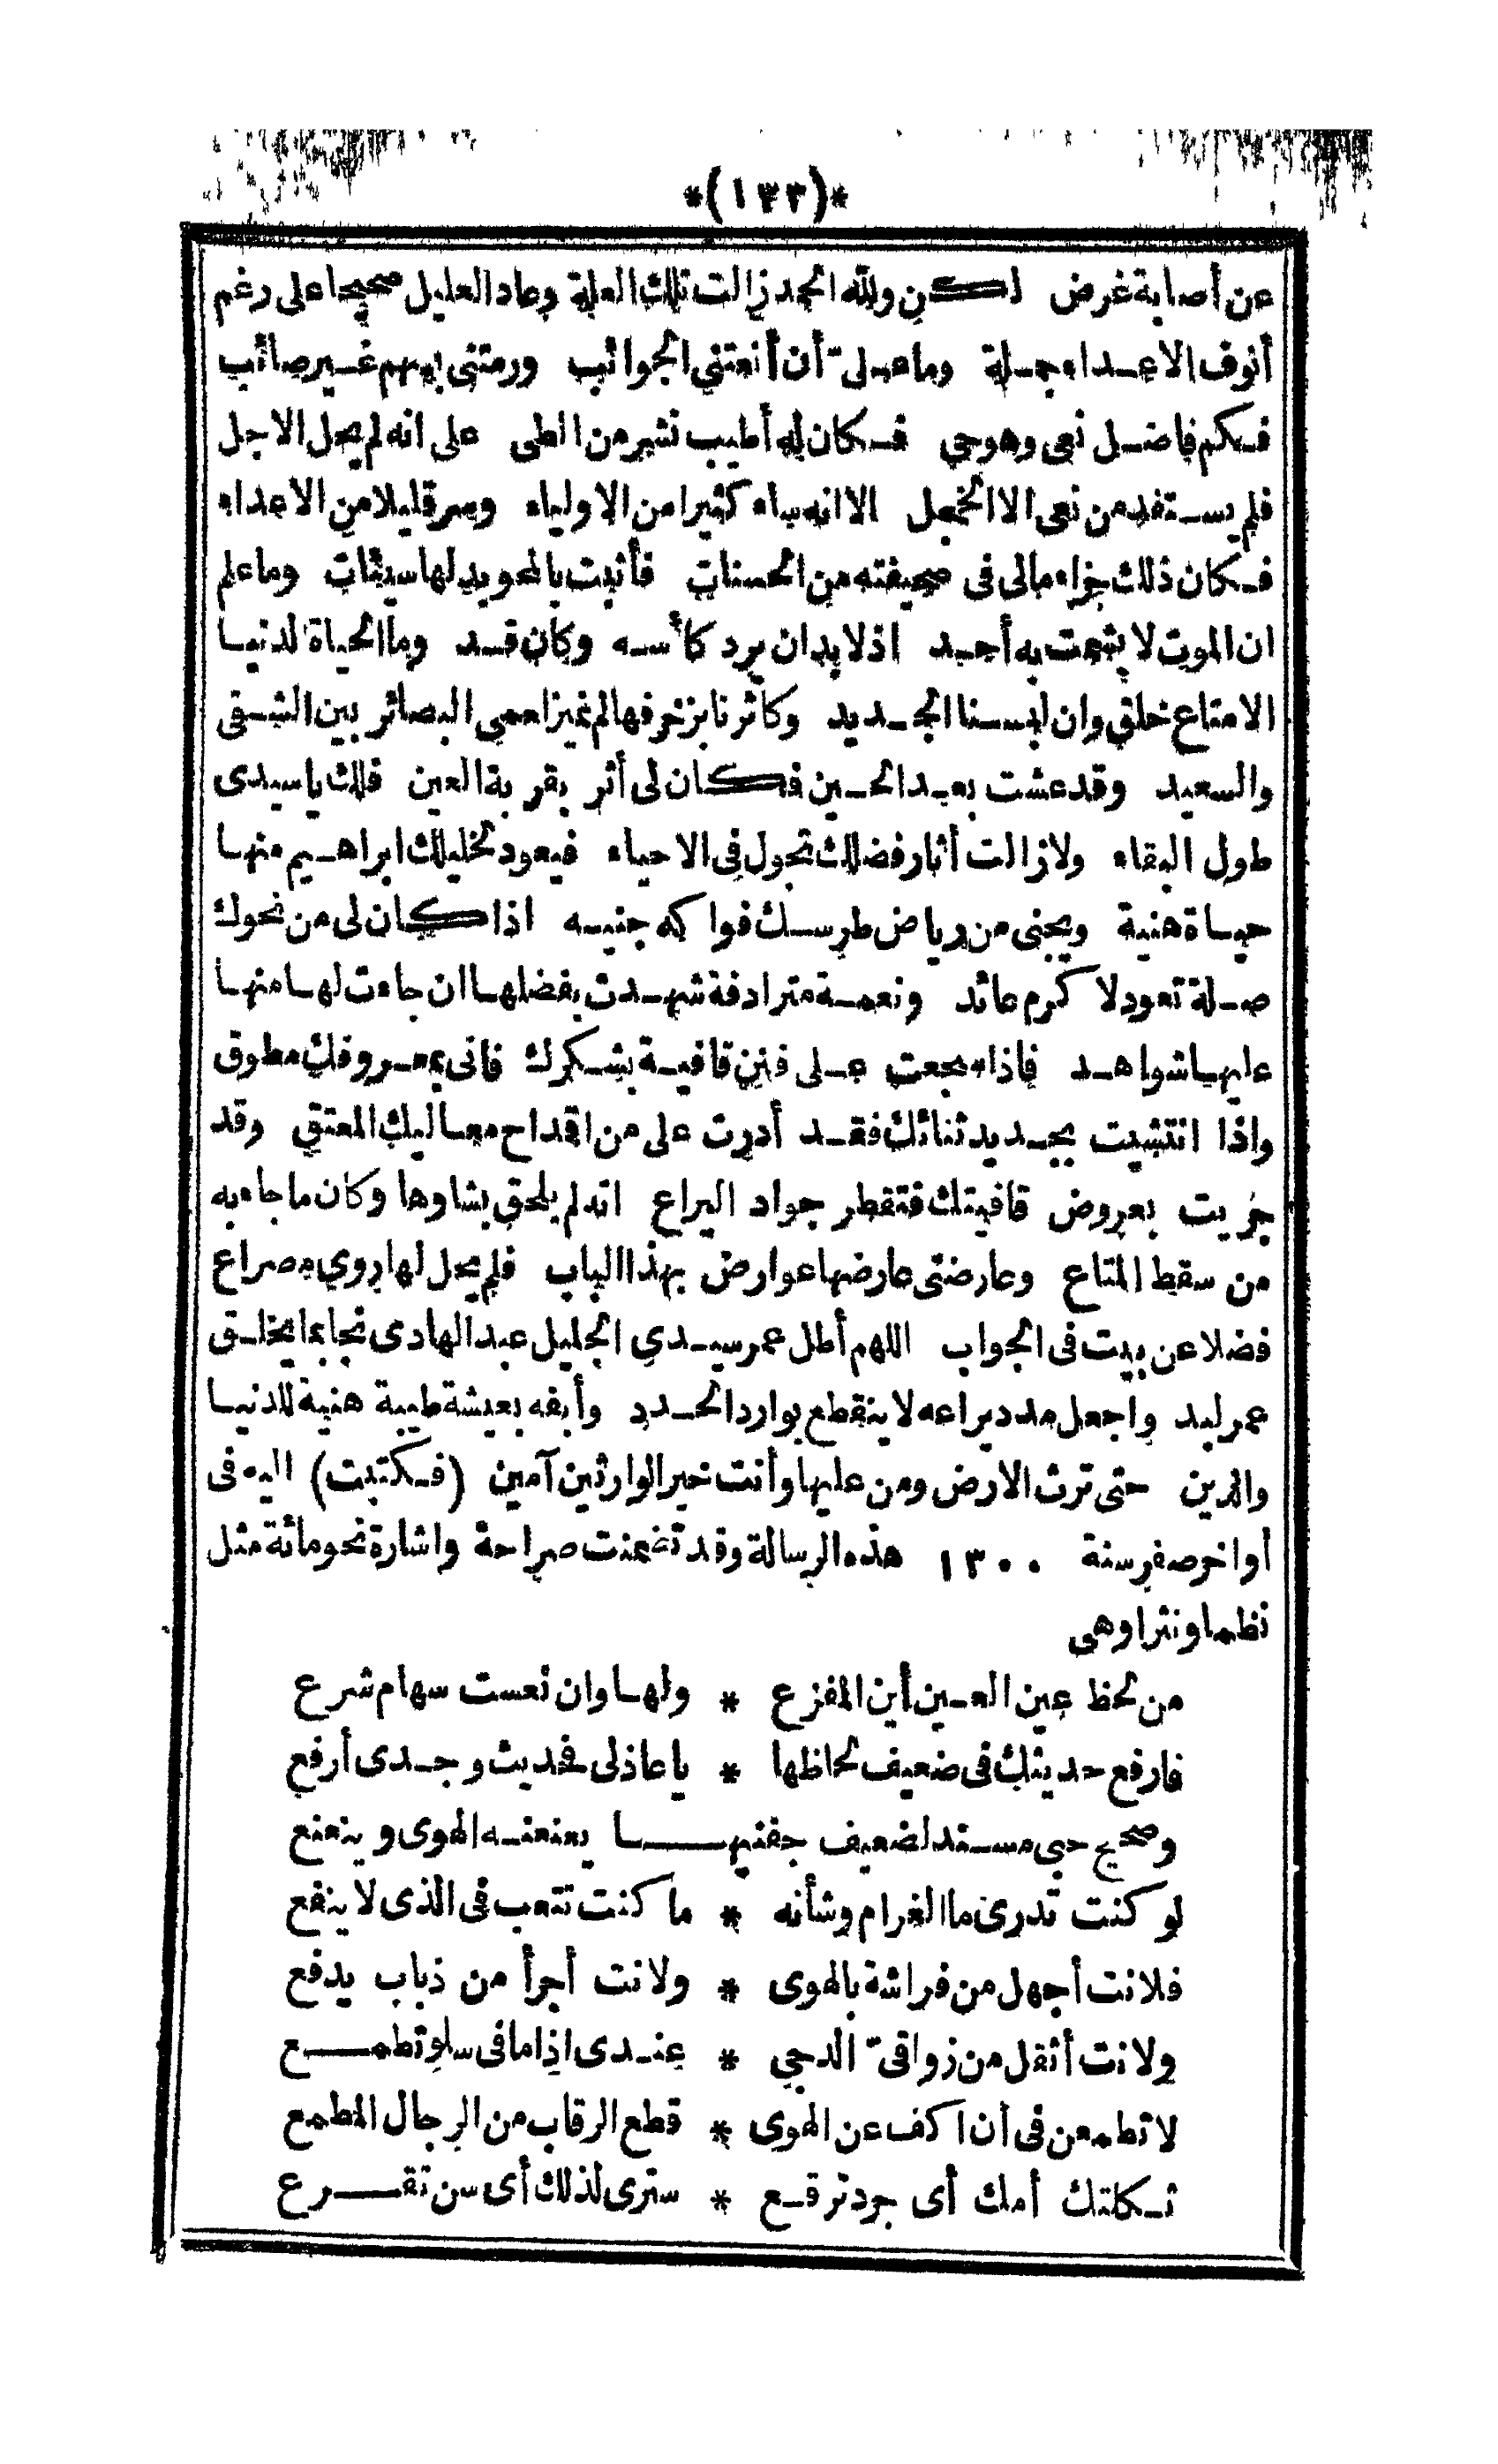 *(١٣٣)*
عن أصابة غرض لكن ولله الحمد زالت تلك العلة وعاد العليل صحيحا على رغم
أنوف الاعداء جملة وما على أن أنعتني الجوائب ورمتنى بسهم غير صائب
فكم فاضل نعى وهو حي فكان له أطيب نشر من الطى على انه لم يحل الاجل
فلم يستفد من نعى الا الخجل الا انه ساء كثيرا من الاولياء وسر قليلا من الاعداء
فكان ذلك جزاء مالى فى صحيفته من الحسنات فأثبت بالمحو يد لها سيئات وما علم
ان الموت لا يشمت به أحد اذ لا بد ان يرد كأسه وكان قد وما الحياة الدنيا
الا متاع خلق وان لبسنا الجديد وكاثرنا بزخرفها لم نميز اعمى البصائر بين الشقى
والسعيد وقد عشت بعد الحين فكان لى أثر بقربة العين فلك يا سيدى
طول البقاء ولا زالت أثار فضلك تجول فى الاحياء فيعود لخليلك ابراهيم منها
حياة هنية ويجنى من رياض طرسك فواكه جنيه اذا كان لى من نحوك
صلة تعود لا كرم عائد ونعمة مترادفة شهدت بفضلها ان جاءت لها منها
عليها شواهد فاذا سجعت على فنن قافية بشكرك فانى بمعروفك مطوق
واذا انتشيت بجديد ثنائك فقد أدرت على من اقداح معاليك المعتق وقد
جريت بعروض قافيتك فتقطر جواد اليراع اذ لم يلحق بشاوها وكان ما جاء به
من سقط المتاع وعارضتى عارضها عوارض بهذا الباب فلم يحل لها روي مصراع
فضلا عن بيت فى الجواب اللهم أطل عمر سيدي الجليل عبد الهادى نجا بما يخلق
عمر لبد واجعل مدد يراعه لا ينقطع بوارد الحدد وأبقه بعيشة طيبة هنية للدنيا
والدين حتى ترث الارض ومن عليها وأنت خير الوارثين آمين (فكتبت) اليه فى
أواخر صفر سنة ١٣٠٠ هذه الرسالة وقد تضمنت صراحة واشارة نحو مائة مثل
نظما ونثرا وهى
من لحظ عين العين أين المفزع * ولها وان نعست سهام شرع
فارفع حديثك فى ضعيف لحاظها * يا عاذلى فحديث وجدى أرفع
وصحيح حبى مسند لضعيف جفنيها يعنعنه الهوى وينعنع
لو كنت تدرى ما الغرام وشأنه * ما كنت تتعب فى الذى لا ينفع
فلانت أجهل من فراشة بالهوى * ولانت أجرأ من ذباب يدفع
ولانت أثقل من زواقىّ الدجي * عندى اذا ما فى سلو تطمع
لا تطمعن فى أن اكف عن الهوى * قطع الرقاب من الرجال المطمع
ثكلتك أمك أى جرد ترقع * سترى لذلك أى سن تقرع